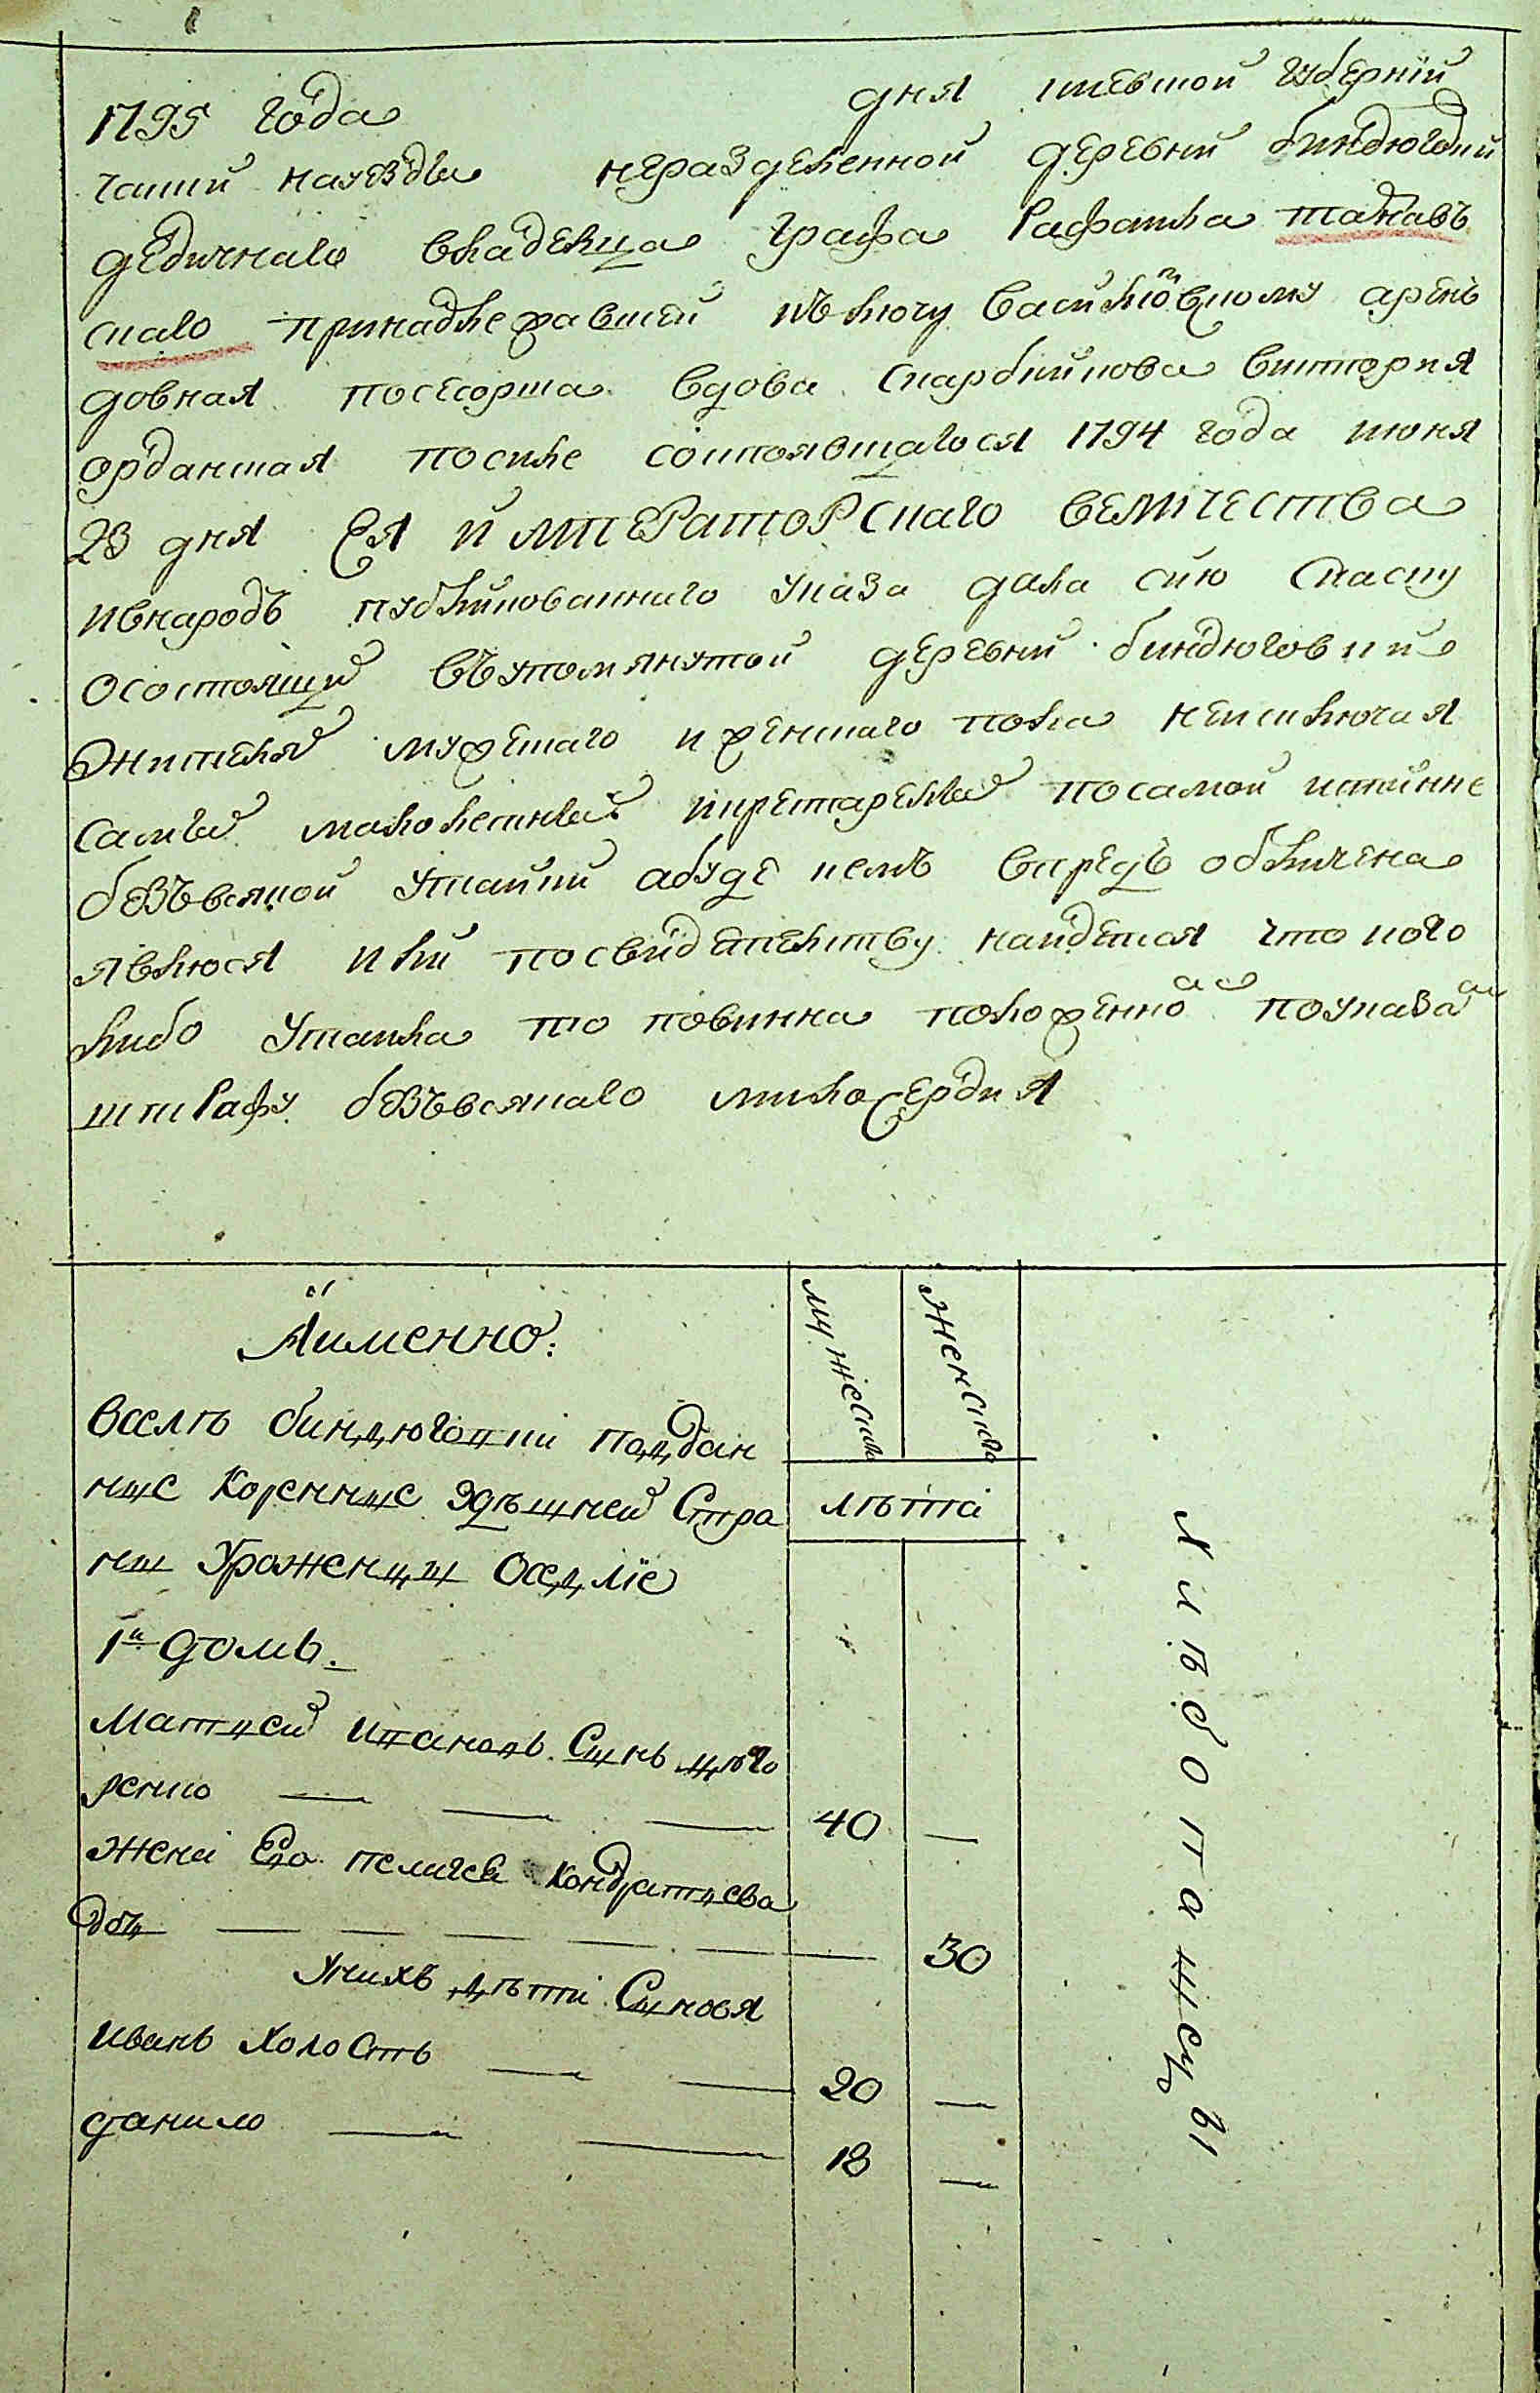 1795 года дня киевской губерніи
части науездъ неразделенной деревни биндюговки
дедичнаго владельца графа Рафаила тарнавъ
скаго принадлежавшей къ ключу василковскому арен
довная посесорша вдова скарбникова виктория
орданская после состоявшагося 1794 года июня
23 дня Ея ИМПЕРАТОРСкаго Величества
ивнародъ публикованнаго указа дала сию сказку
осостоящихъ въупомянутой деревни биндюговки
жителяхъ мужескаго иженскаго пола неисключая
самыхъ малолетныхъ ипрестарелыхъ посамой истинне
безъвсякой утайки абуде кемъ впредь обличена
явлюся или посвидетелству найдется что кого
либо утаила то повинна положенно ас поуказа ам
штрафу безъвсякаго милосердия
Аименно:
мужеска
женска
вселъ биндюговки поддан
ние коренние здѣшней Стра
ни Уроженци Оседліе
лѣта
1й домъ.
Матвей Сынъ
ренко — — — 40 —
жена Его пелагея кондратиева
дочь — — — 30
Унихъ дѣти Синовя
иванъ холостъ — — 20 —
данило — — 18 —